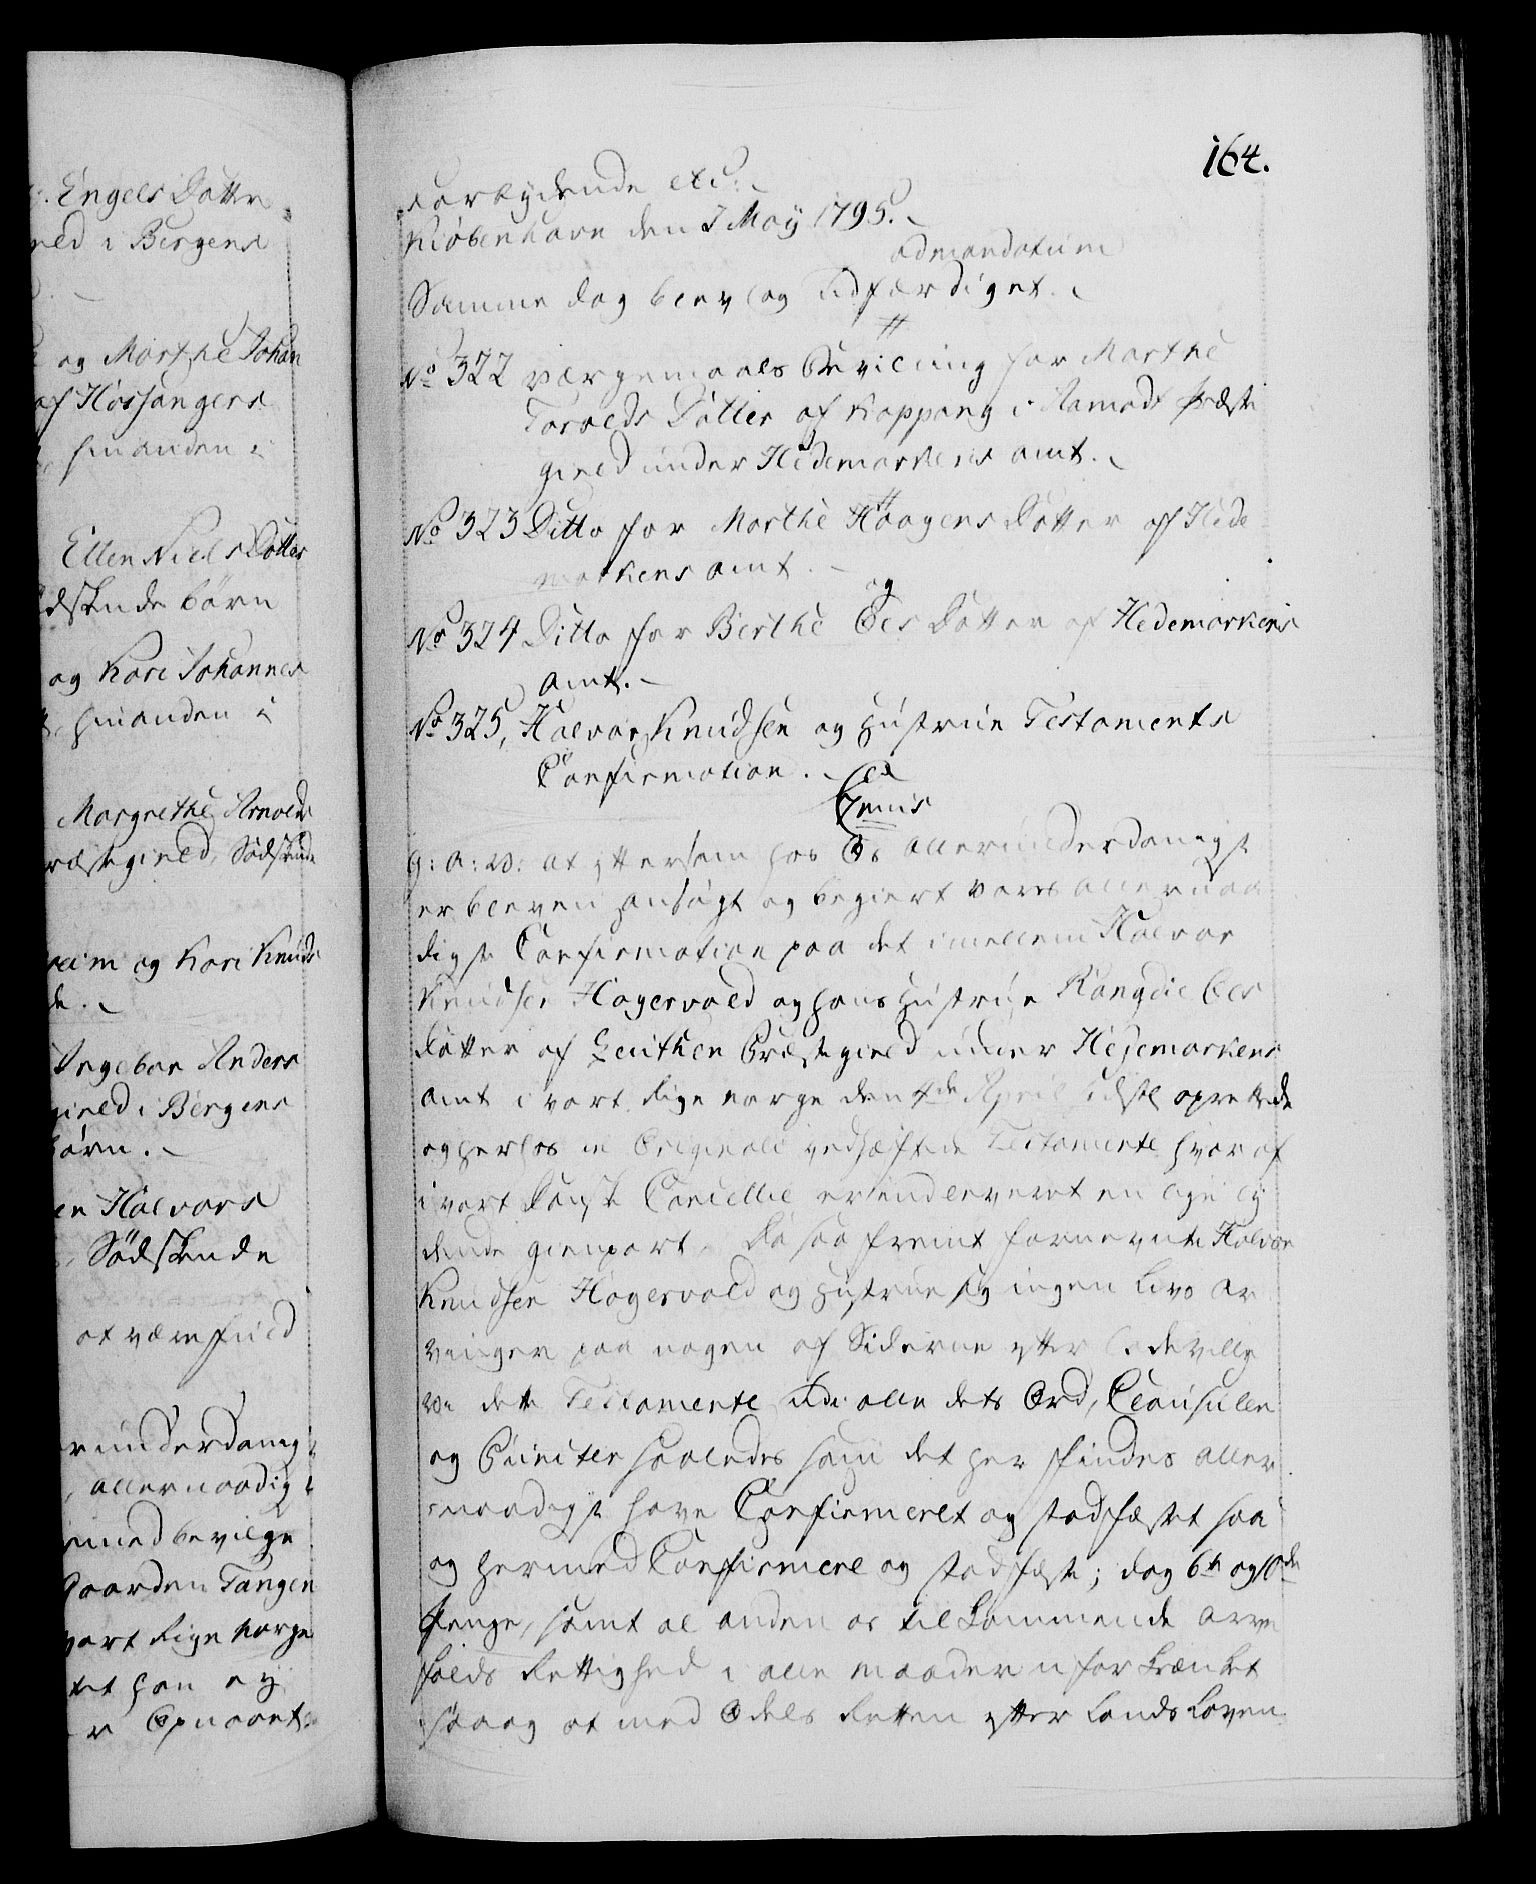 164.
Engels Datter
ield i Bergens
og Marthe Johan
af Hossangers
hinanden i
Ellen Niels Datter
dskende børn
og Kari Johannes
hinanden i
Margrethe Arnolds
ræstegield, Sødskende
eim og Kari Knuds
de.
Ingebor Anders
gield i Bergens
børn.
en Halvors
Sødskende
at være fuld
runderdanig
allernaadigst
med bevilge
Gaarden Tangen
vort Rige Norge
tet han ey
Opnaaet
Forbydende etc:
Kiøbenhavn den 7 May 1795.
admandatum
Samme dag blev og udfærdiget.
No 322 værgemaals Bevilling for Marthe
Torolds Datter af Koppang i Aamodt Præste
gield under Hedemarkens amt.
No 323 Ditto for Marthe Haagens Datter af Hede
markens amt. og
No 324 Ditto for Berthe Ols Datter af Hedemarkens
amt.
No 325, Halvor Knudsen og Hustrue Testaments
Confirmation.
G: A: V: at eftersom hos Os allerunderdanigst
er bleven ansøgt og begiert vores allernaa
digste Confirmation paa det imellem Halvor
Knudsen Hagervold og hans Hustrue Rangdie Ols
Datter af Leuthen Præstegield under Hedemarkens
amt i vort Rige Norge den 4de April sidstl oprettede
og herhos in Originali vedhæftede Testamente hvoraf
i vort Danske Cancellie er indleveret en lige ly
dende gienpart. Da saafremt fornevnte Halvor
Knudsen Hagervold og Hustrue sig ingen Livs Ar
vinger paa nogen af Siderne efterlade ville
Vi dette Testamente udi alle dets Ord, Clausuller
og Puncter saaledes som det her findes aller
naadigst have Confirmeret og stadfæstet saa
og hermed Confirmere og stadfæste; dog 6te og 10de
Penge, samt al anden os tilkommende Arve
falds Rettighed i alle maader uforkrænket
saa og at med Odels Retten efter Lands Loven